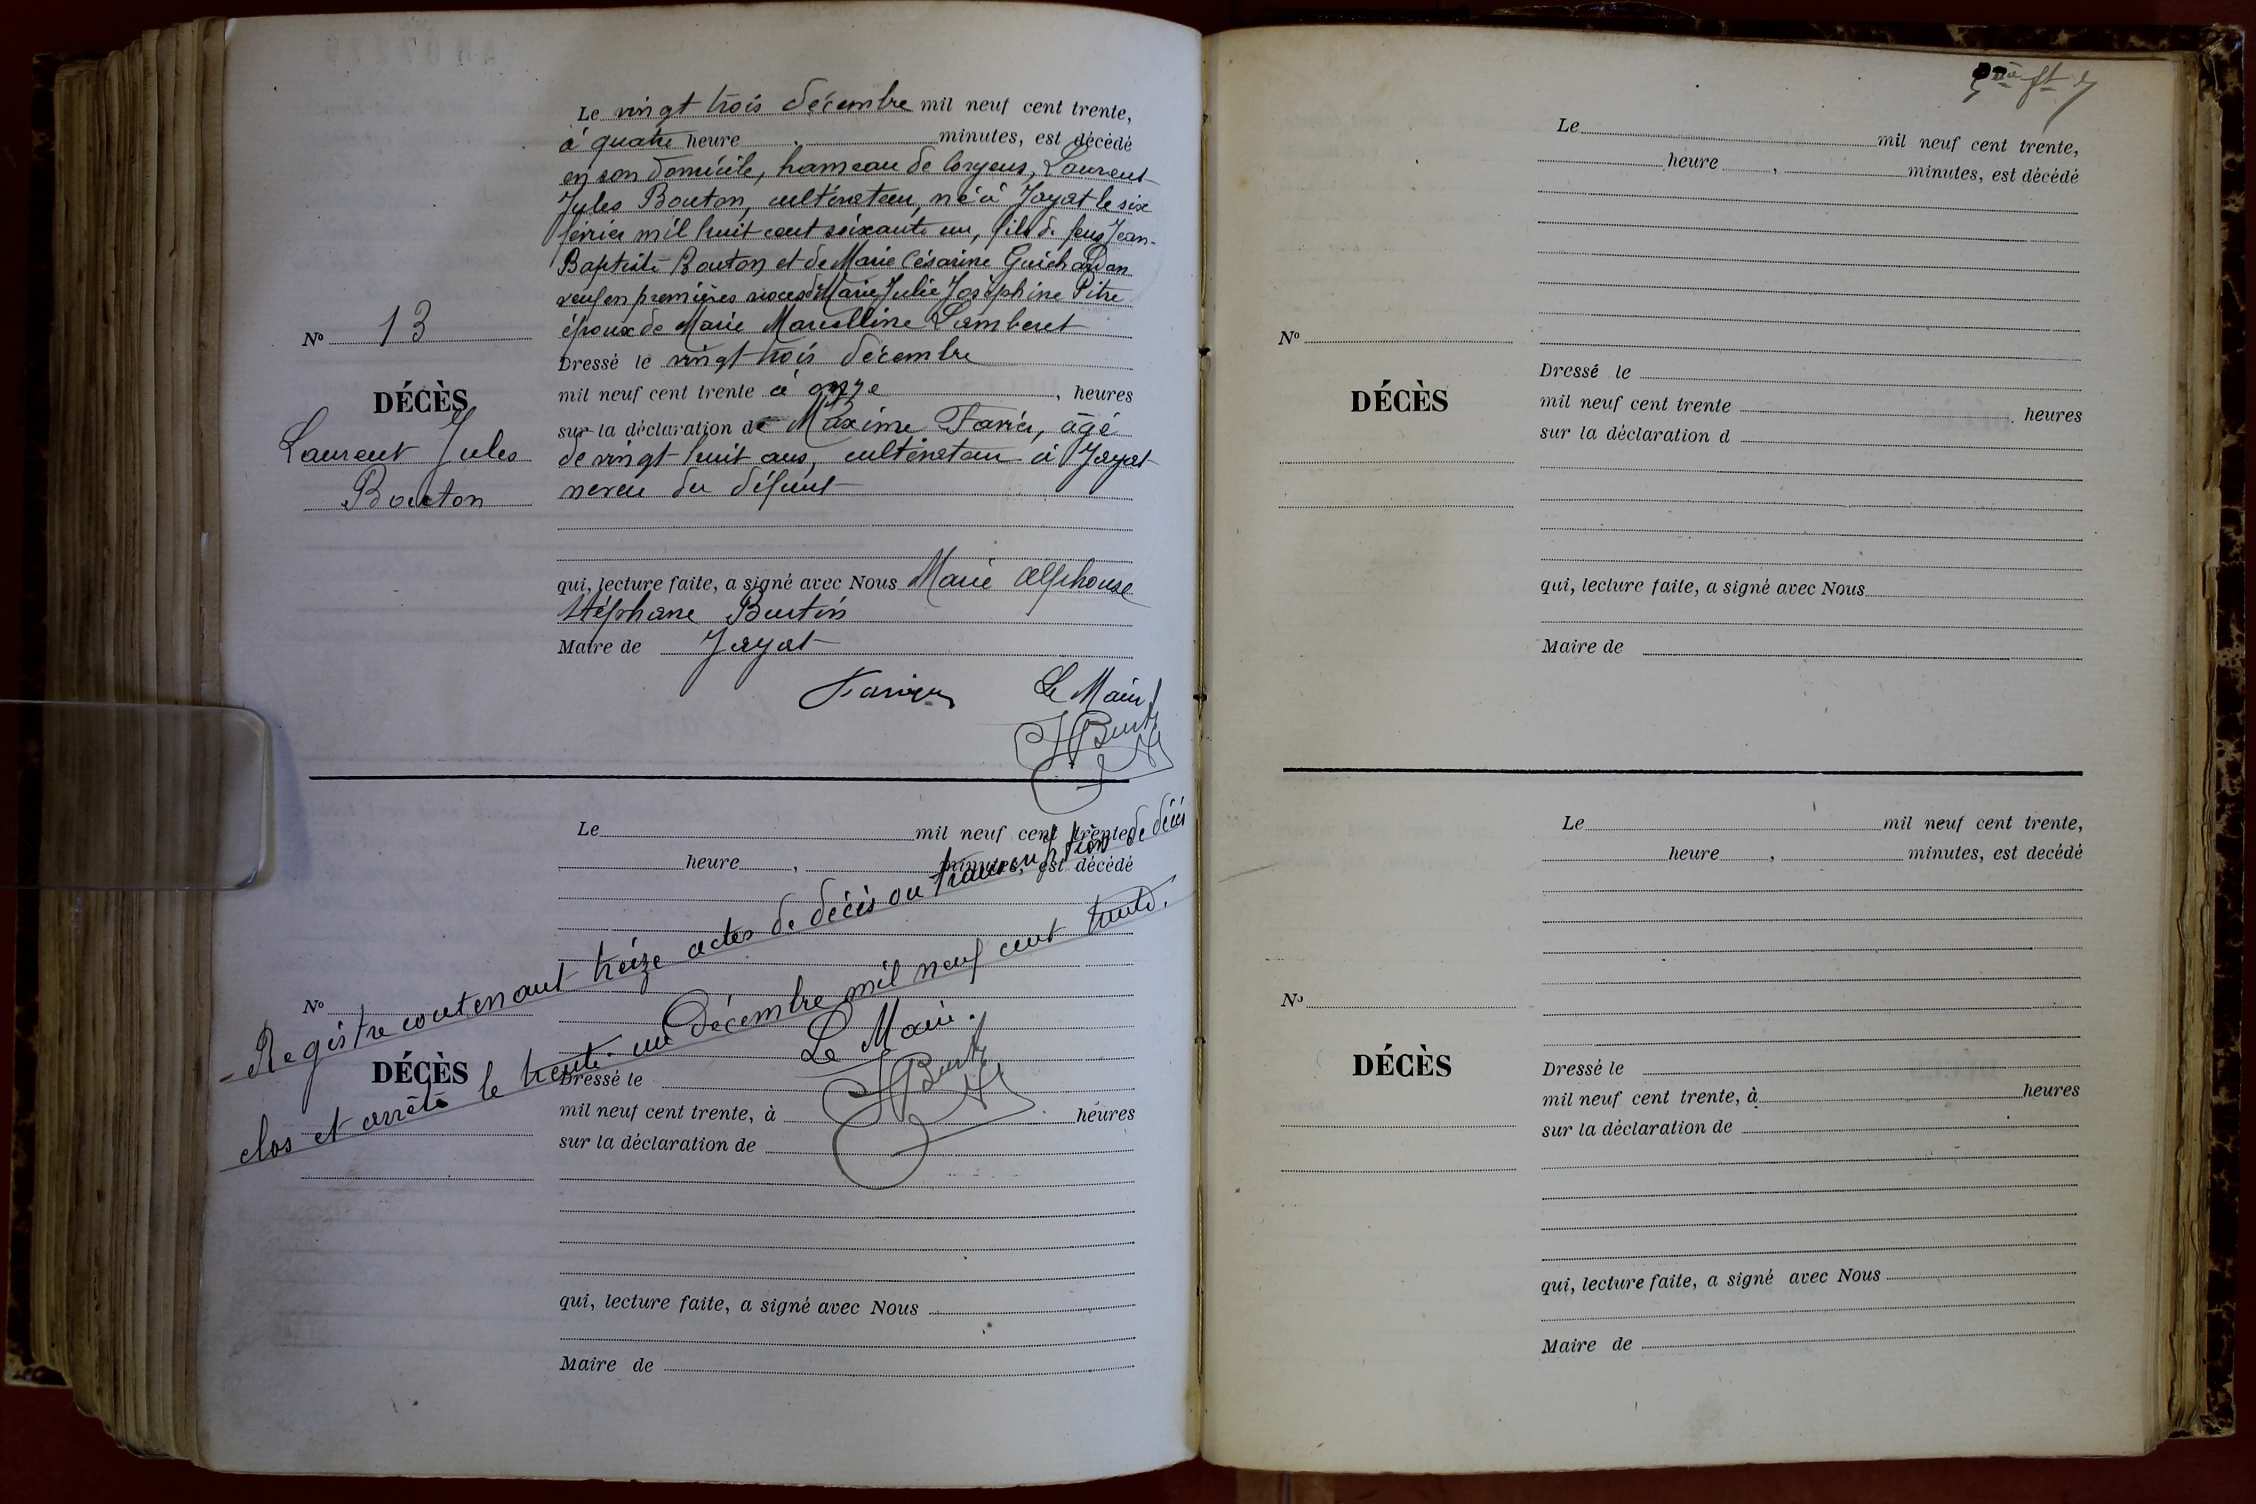 Le vingt trois décembre mil neuf cent trente,
à quatre heure , minutes, est décédé
en son domicile, hameau de , Laurent
Jules Bouton, cultivateur, né à Jayat le six
février mil huit cent soixante un, fils de feus Jean-
Baptiste Bouton et de Marie Césarine Guichardan
veuf en premières noces de Marie Julie Joséphine Pitre
époux de Marie Marcelline Lamberet
Dressé le vingt trois décembre
mil neuf cent trente à onze , heures
sur la déclaration de Maxime Favier, âgé
de vingt huit ans, cultivateur à Jayat
neveu du défunt
qui, lecture faite, a signé avec Nous Marie Alphonse
Stéphane Burtin
Maire de Jayat
Favier Le Maire
Burtin
No 13
DÉCÈS
Laurent Jules
Bouton
Le mil neuf cent trente,
heure , minutes, est décédé
No
DÉCÈS
Dressé le
mil neuf cent trente, à heures
sur la déclaration de
qui, lecture faite, a signé avec Nous
Maire de
Registre contenant treize actes de décès ou transcription de décès
clos et arrêté le trente un décembre mil neuf cent trente.
Le Maire.
Burtin
Le mil neuf cent trente,
heure , minutes, est décédé
No
DÉCÈS
Dressé le
mil neuf cent trente heures
sur la déclaration d
qui, lecture faite, a signé avec Nous
Maire de
Le mil neuf cent trente,
heure , minutes, est decédé
No
DÉCÈS
Dressé le
mil neuf cent trente, à heures
sur la déclaration de
qui, lecture faite, a signé avec Nous
Maire de